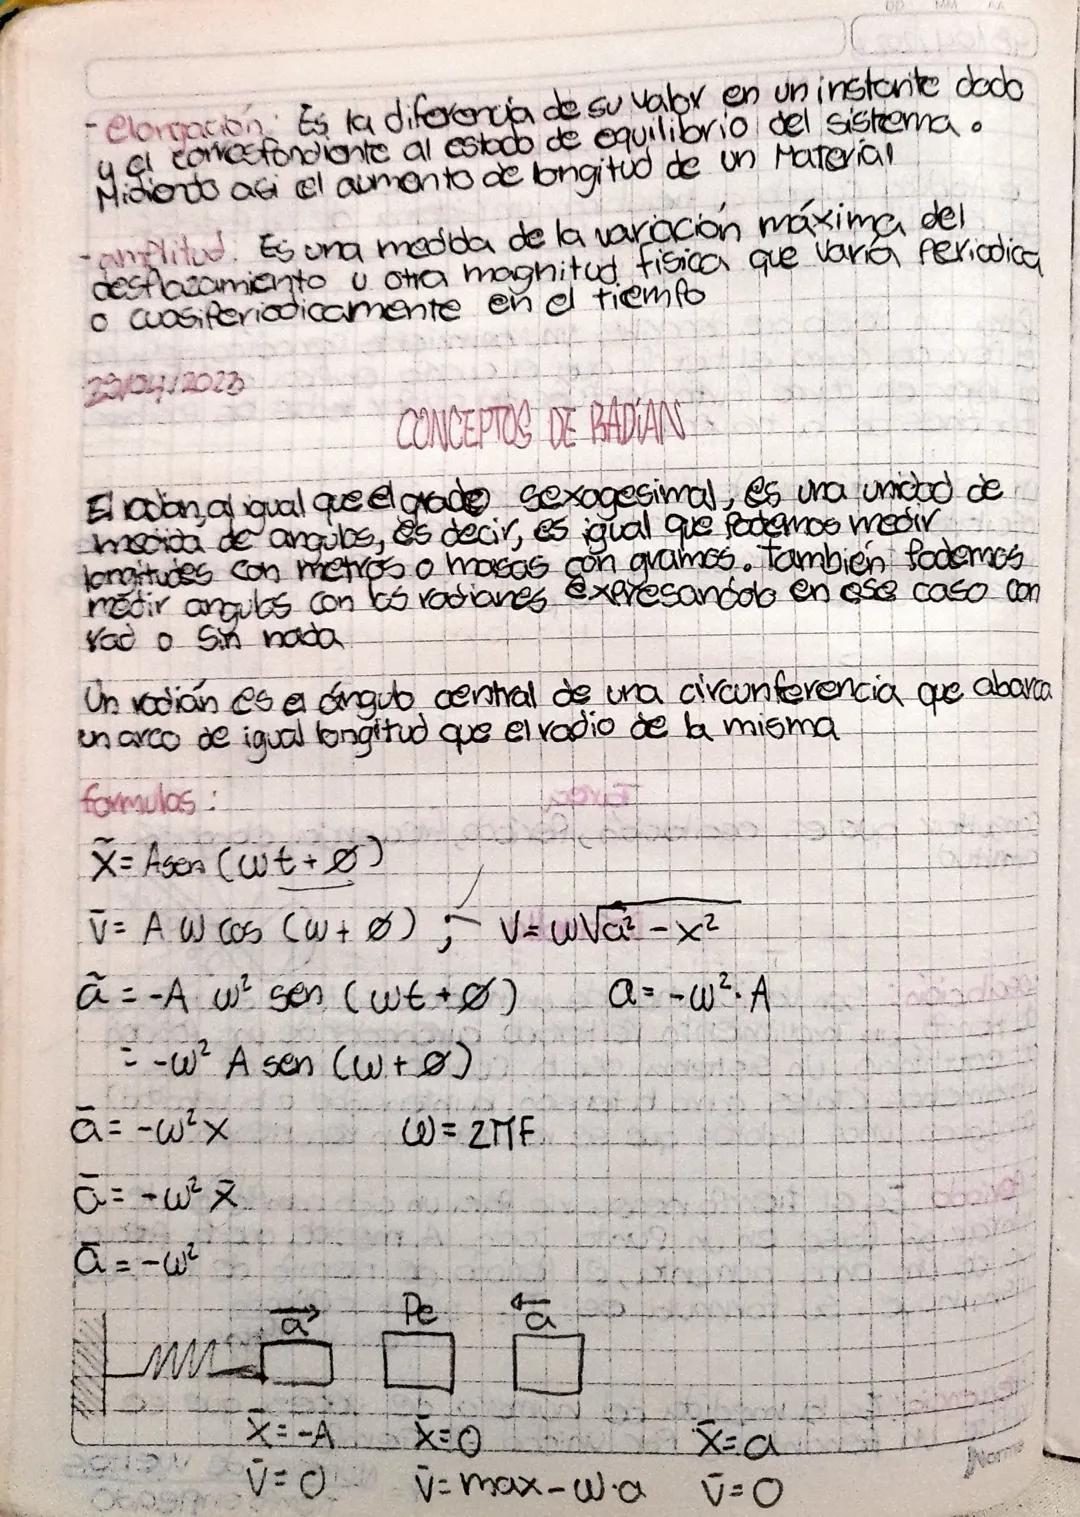 DD MM AA
- Elongación: Es la diferencia de su valor en un instante dado
y el correspondiente al estado de equilibrio del sistema.
Midiendo asi el aumento de longitud de un Material
- amplitud. Es una medida de la variación máxima del
desplazamiento u otra magnitud física que varía Periodica
o cuasiPeriodicamente en el tiempo
29/04/2023
CONCEPTOS DE RADiAN
El radian, al igual que el grado sexagesimal, es una unidad de
medida de angulos, es decir, es igual que Podemos medir
longitudes con metros o masas con gramos. También Podemos
medir angulos con los radianes expresandolo en ese caso con
rad o Sin nada
Un radián es el ángulo central de una circunferencia que abarca
un arco de igual longitud que el radio de la misma
formulas:
x̃ = Asen (ωt + Ø)
v̄ = A ω cos (ω + Ø) ; V = ω√a² - x²
ã = -A ω² sen (ωt + Ø) a = -ω² · A
= -ω² A sen (ω + Ø)
ā = -ω² x ω = 2πF
ā = -ω² x̄
ā = -ω²
a⃗ Pe a⃖
x̄ = -A x̄ = 0 x̄ = a
v̄ = 0 v̄ = max - ω·a v̄ = 0
Norma